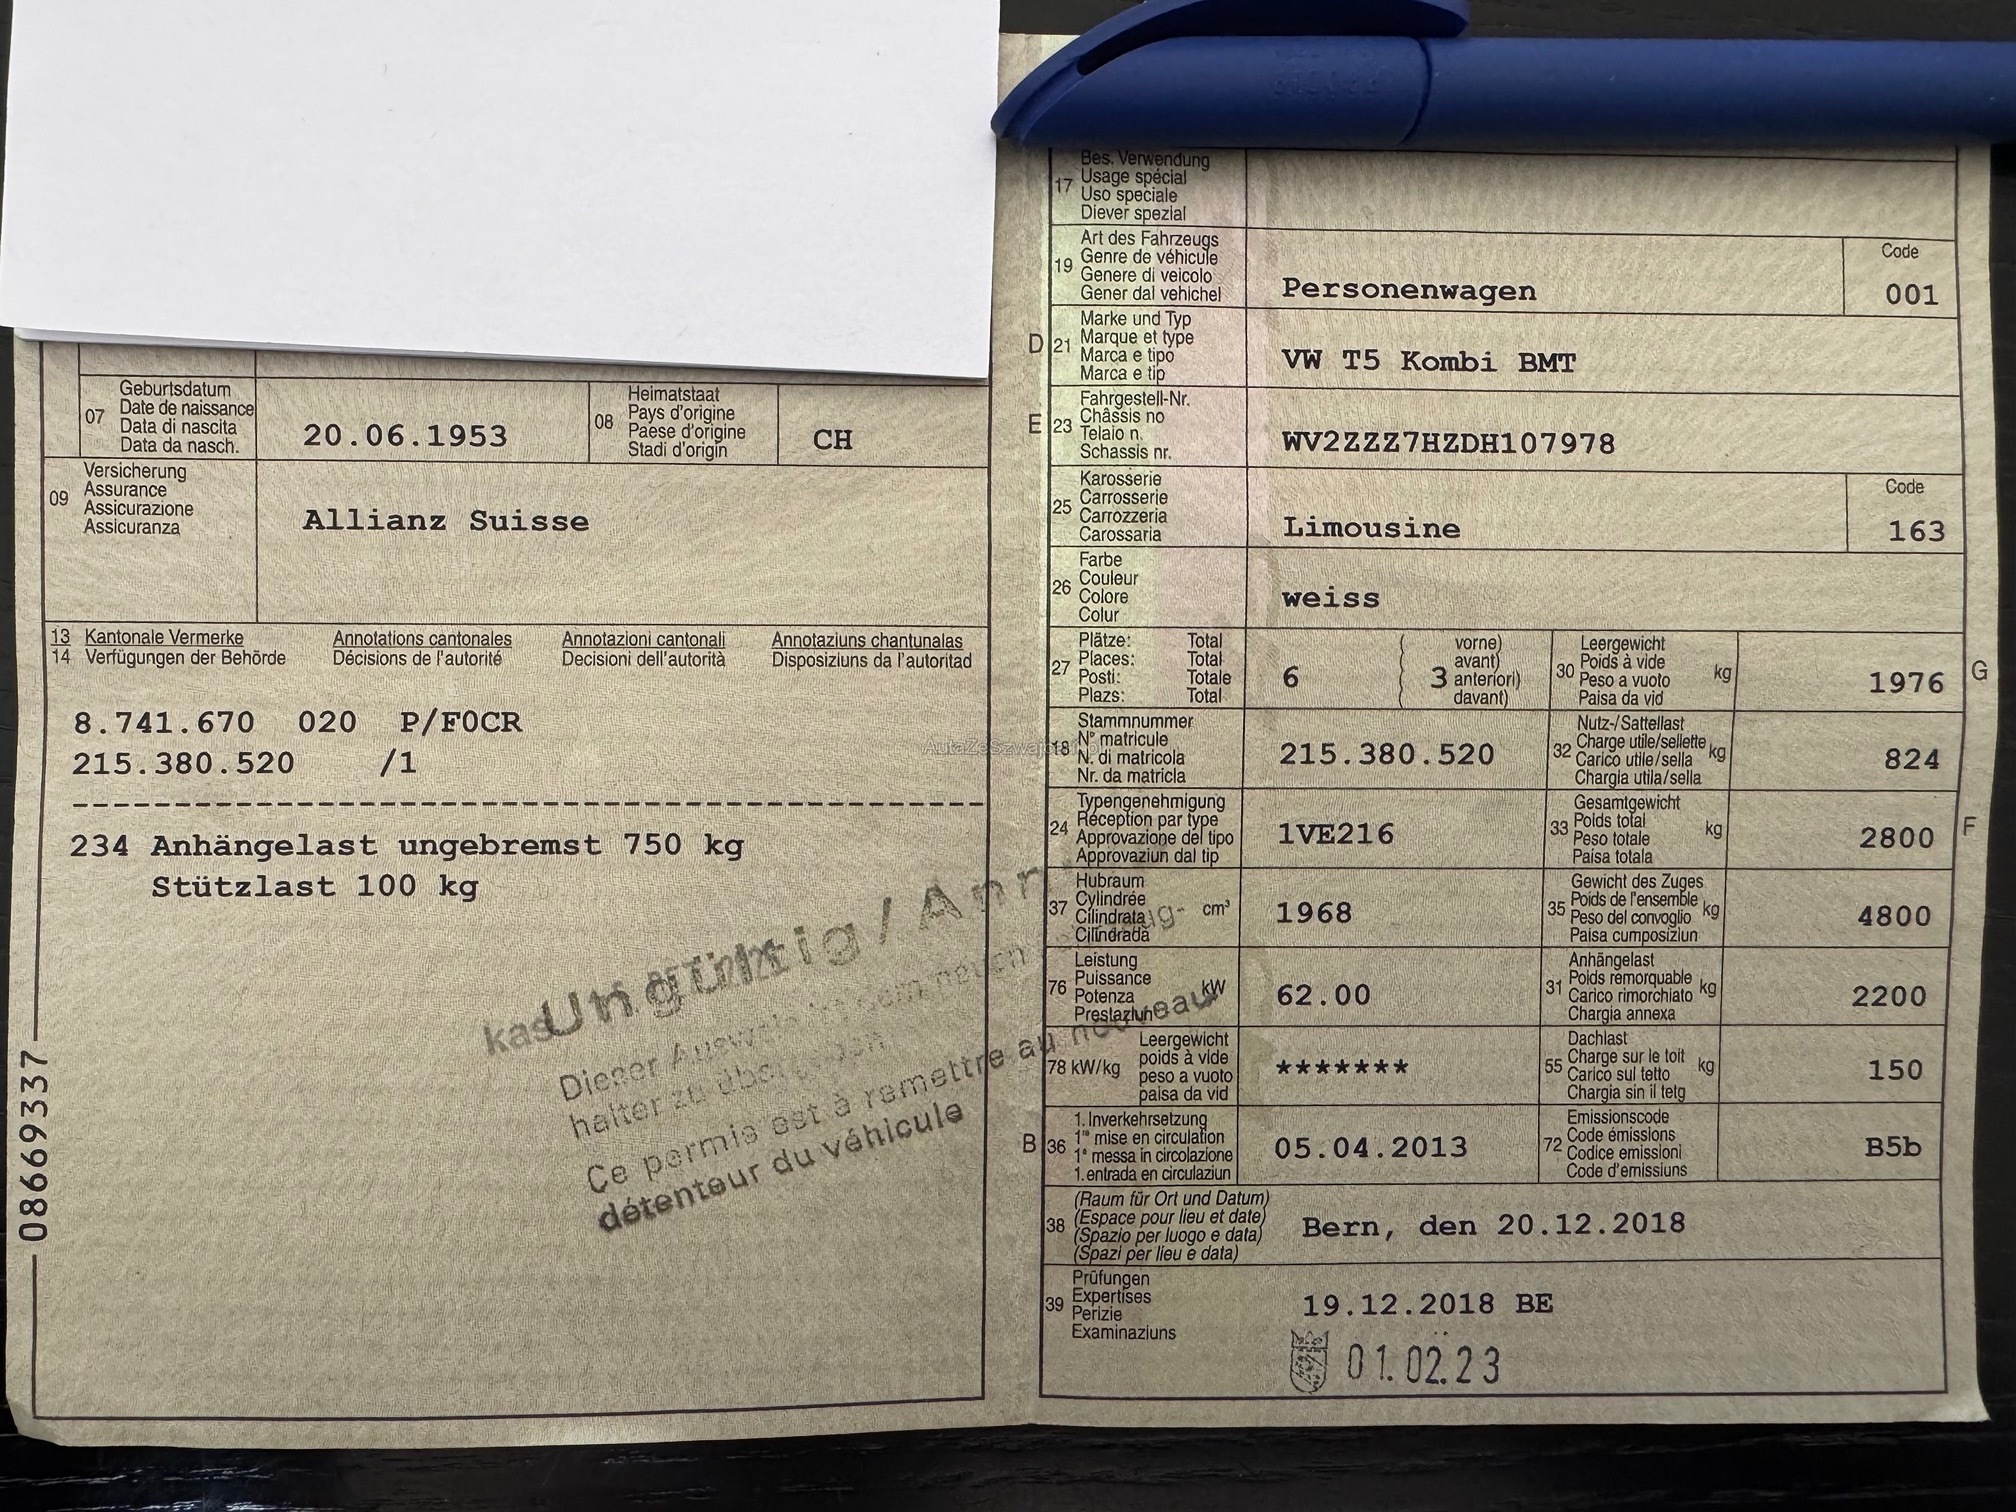 Geburtsdatum
Date de naissance
Data di nascita
Data da nasch.
07
20.06.1953
08
Heimatstaat
Pays d'origine
Paese d'origine
Stadi d'origin
CH
09
Versicherung
Assurance
Assicurazione
Assicuranza
Allianz Suisse
13 Kantonale Vermerke Annotations cantonales Annotazioni cantonali Annotaziuns chantunalas
14 Verfügungen der Behörde Décisions de l'autorité Decisioni dell'autorità Disposiziuns da l'autoritad
8.741.670 020 P/F0CR
215.380.520 /1
234 Anhängelast ungebremst 750 kg
Stützlast 100 kg
Ungültig/
Dieser
halter zu
Ce permis est à remettre au nouveau
détenteur du véhicule
08669337
17
Bes. Verwendung
Usage spécial
Uso speciale
Diever spezial
19
Art des Fahrzeugs
Genre de véhicule
Genere di veicolo
Gener dal vehichel
Personenwagen
Code
001
D 21
Marke und Typ
Marque et type
Marca e tipo
Marca e tip
VW T5 Kombi BMT
E 23
Fahrgestell-Nr.
Châssis no
Telaio n.
Schassis nr.
WV2ZZZ7HZDH107978
25
Karosserie
Carrosserie
Carrozzeria
Carossaria
Limousine
Code
163
26
Farbe
Couleur
Colore
Colur
weiss
27
Plätze: Total
Places: Total
Posti: Totale
Plazs: Total
6
3
( vorne)
avant)
anteriori)
( davant)
30
Leergewicht
Poids à vide
Peso a vuoto
Paisa da vid
kg
1976
G
18
Stammnummer
N° matricule
N. di matricola
Nr. da matricla
215.380.520
32
Nutz-/Sattellast
Charge utile/sellette
Carico utile/sella
Chargia utila/sella
kg
824
24
Typengenehmigung
Réception par type
Approvazione del tipo
Approvaziun dal tip
1VE216
33
Gesamtgewicht
Poids total
Peso totale
Paisa totala
kg
2800
F
37
Hubraum
Cylindrée
Cilindrata
Cilindrada
cm³
1968
35
Gewicht des Zuges
Poids de l'ensemble
Peso del convoglio
Paisa cumposiziun
kg
4800
76
Leistung
Puissance
Potenza
Prestaziun
kW
62.00
31
Anhängelast
Poids remorquable
Carico rimorchiato
Chargia annexa
kg
2200
78 kW/kg
Leergewicht
poids à vide
peso a vuoto
paisa da vid
*******
55
Dachlast
Charge sur le toit
Carico sul tetto
Chargia sin il tetg
kg
150
B 36
1. Inverkehrsetzung
1re mise en circulation
1a messa in circolazione
1. entrada en circulaziun
05.04.2013
72
Emissionscode
Code émissions
Codice emissioni
Code d'emissiuns
B5b
38
(Raum für Ort und Datum)
(Espace pour lieu et date)
(Spazio per luogo e data)
(Spazi per lieu e data)
Bern, den 20.12.2018
39
Prüfungen
Expertises
Perizie
Examinaziuns
19.12.2018 BE
01.02.23